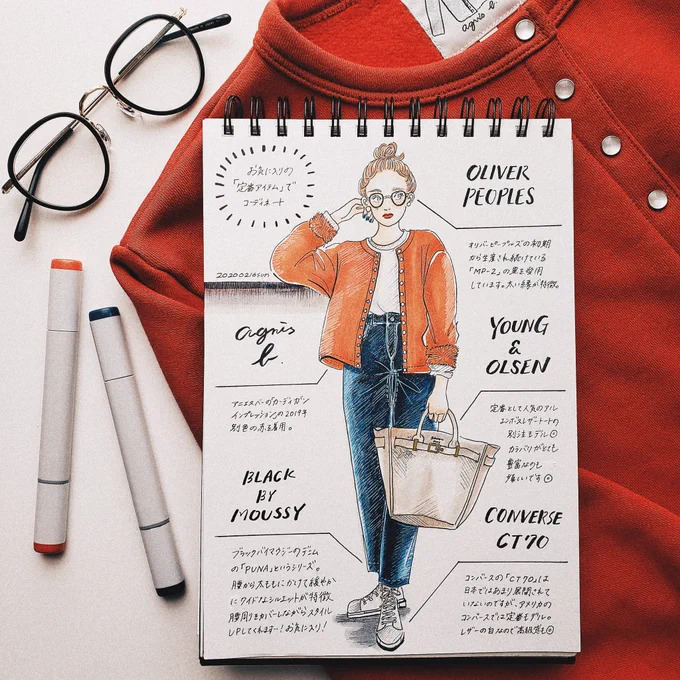 agnès b.
お気に入りの
「定番アイテム」で
コーディネート
OLIVER
PEOPLES
オリバーピープルズの初期
から生産され続けている
「MP-2」の黒を愛用
しています。太い縁が特徴。
20200216sun
agnès
b.
アニエスベーのカーディガン
の2019年
別色の赤を着用。
YOUNG
&
OLSEN
定番として人気の
エンボスレザートートの
別注モデル
カラバリがとても
豊富なのも
嬉しいです
BLACK
BY
MOUSSY
ブラックバイマウジーのデニム
の「PUNA」というシリーズ。
腰から太ももにかけて緩やか
にワイドなシルエットが特徴
腰周りをカバーしながらスタイル
UPしてくれますー！お気に入り！
CONVERSE
CT70
コンバースの「CT70」は
日本ではあまり展開されて
いないのですが、アメリカの
コンバースでは定番モデル。
レザーの白なので高級感も